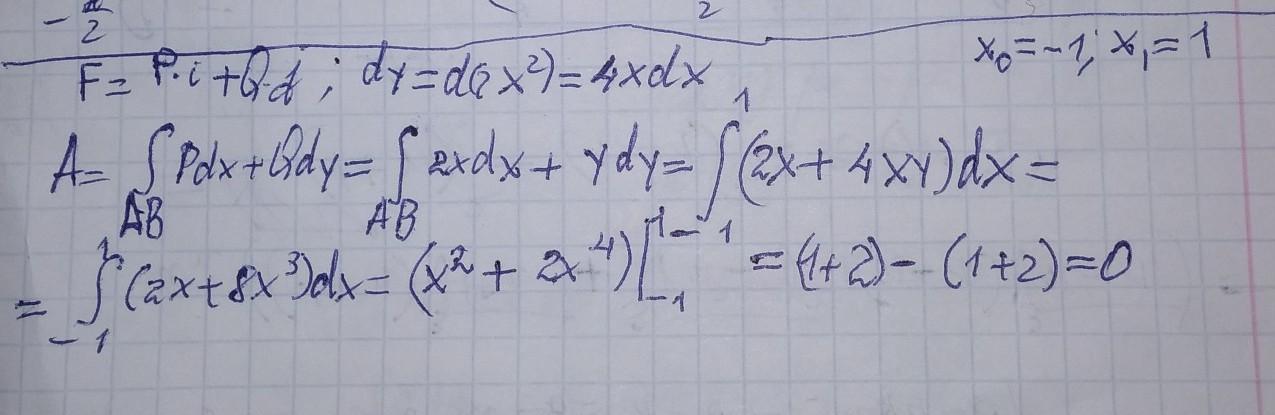 -π/2 2
x₀=-1; x₁=1
F= P·i+Q·j; dy=d(2x²)=4xdx
A= ∫_AB Pdx+Qdy= ∫_AB 2xdx+ ydy= ∫_-1^1 (2x+4xy)dx=
= ∫_-1^1 (2x+8x³)dx= (x²+2x⁴)|_-1^1 =(1+2)-(1+2)=0